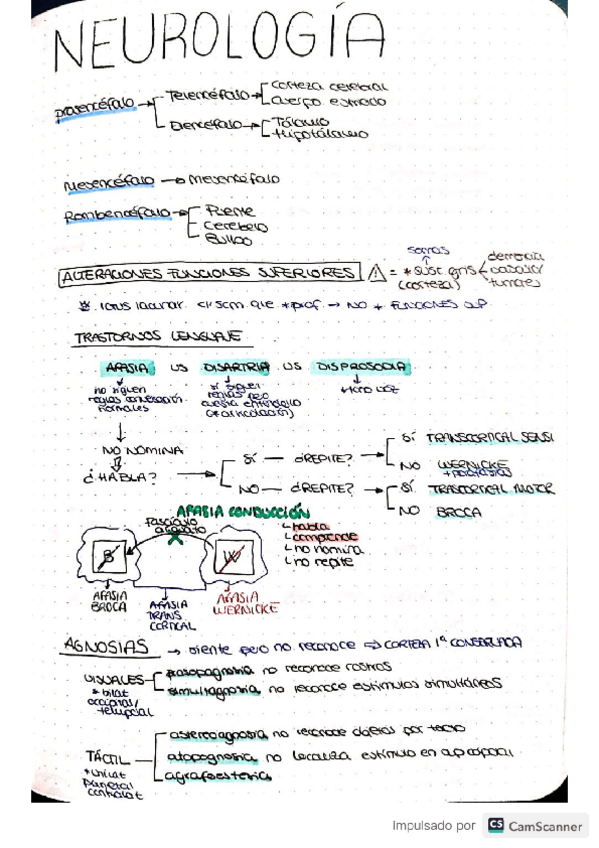 NEUROLOGÍA
prosencéfalo → Telencéfalo → corteza cerebral
cuerpo estriado
Diencéfalo → Tálamo
Hipotálamo
Mesencéfalo → Mesencéfalo
Rombencéfalo → Puente
Cerebelo
Bulbo
somas
ALTERACIONES FUNCIONES SUPERIORES ⚠ = * sust. gris
(corteza)
demencia
vascular
tumores
que +prof. → NO + FUNCIONES SUP
TRASTORNOS LENGUAJE
AFASIA VS DISARTRIA VS DISPROSODIA
no siguen
reglas conversación
normales
sí siguen
reglas pero
cuesta entenderlo
(*articulación)
NO NOMINA
¿HABLA? → SÍ — ¿REPITE? → SÍ TRANSCORTICAL SENSI
NO WERNICKE
NO — ¿REPITE? → SÍ TRASCORTICAL MOTOR
NO BROCA
AFASIA CONDUCCIÓN
fascículo
arcuato
habla
comprende
no nomina
no repite
B W
AFASIA
BROCA
AFASIA
TRANS
CORTICAL
AFASIA
WERNICKE
AGNOSIAS → siente pero no reconoce ⇒ CORTEZA 1ª CONSERVADA
VISUALES prosopagnosia no reconoce rostros
simultagnosia no reconoce estímulos simultáneos
* bilat
occipital/
temporal
TÁCTIL astereoagnosia no reconoce objetos por tacto
atopognosia no localiza estímulo en
agrafoestesia
* unilat
parietal
contralat
Impulsado por CS CamScanner